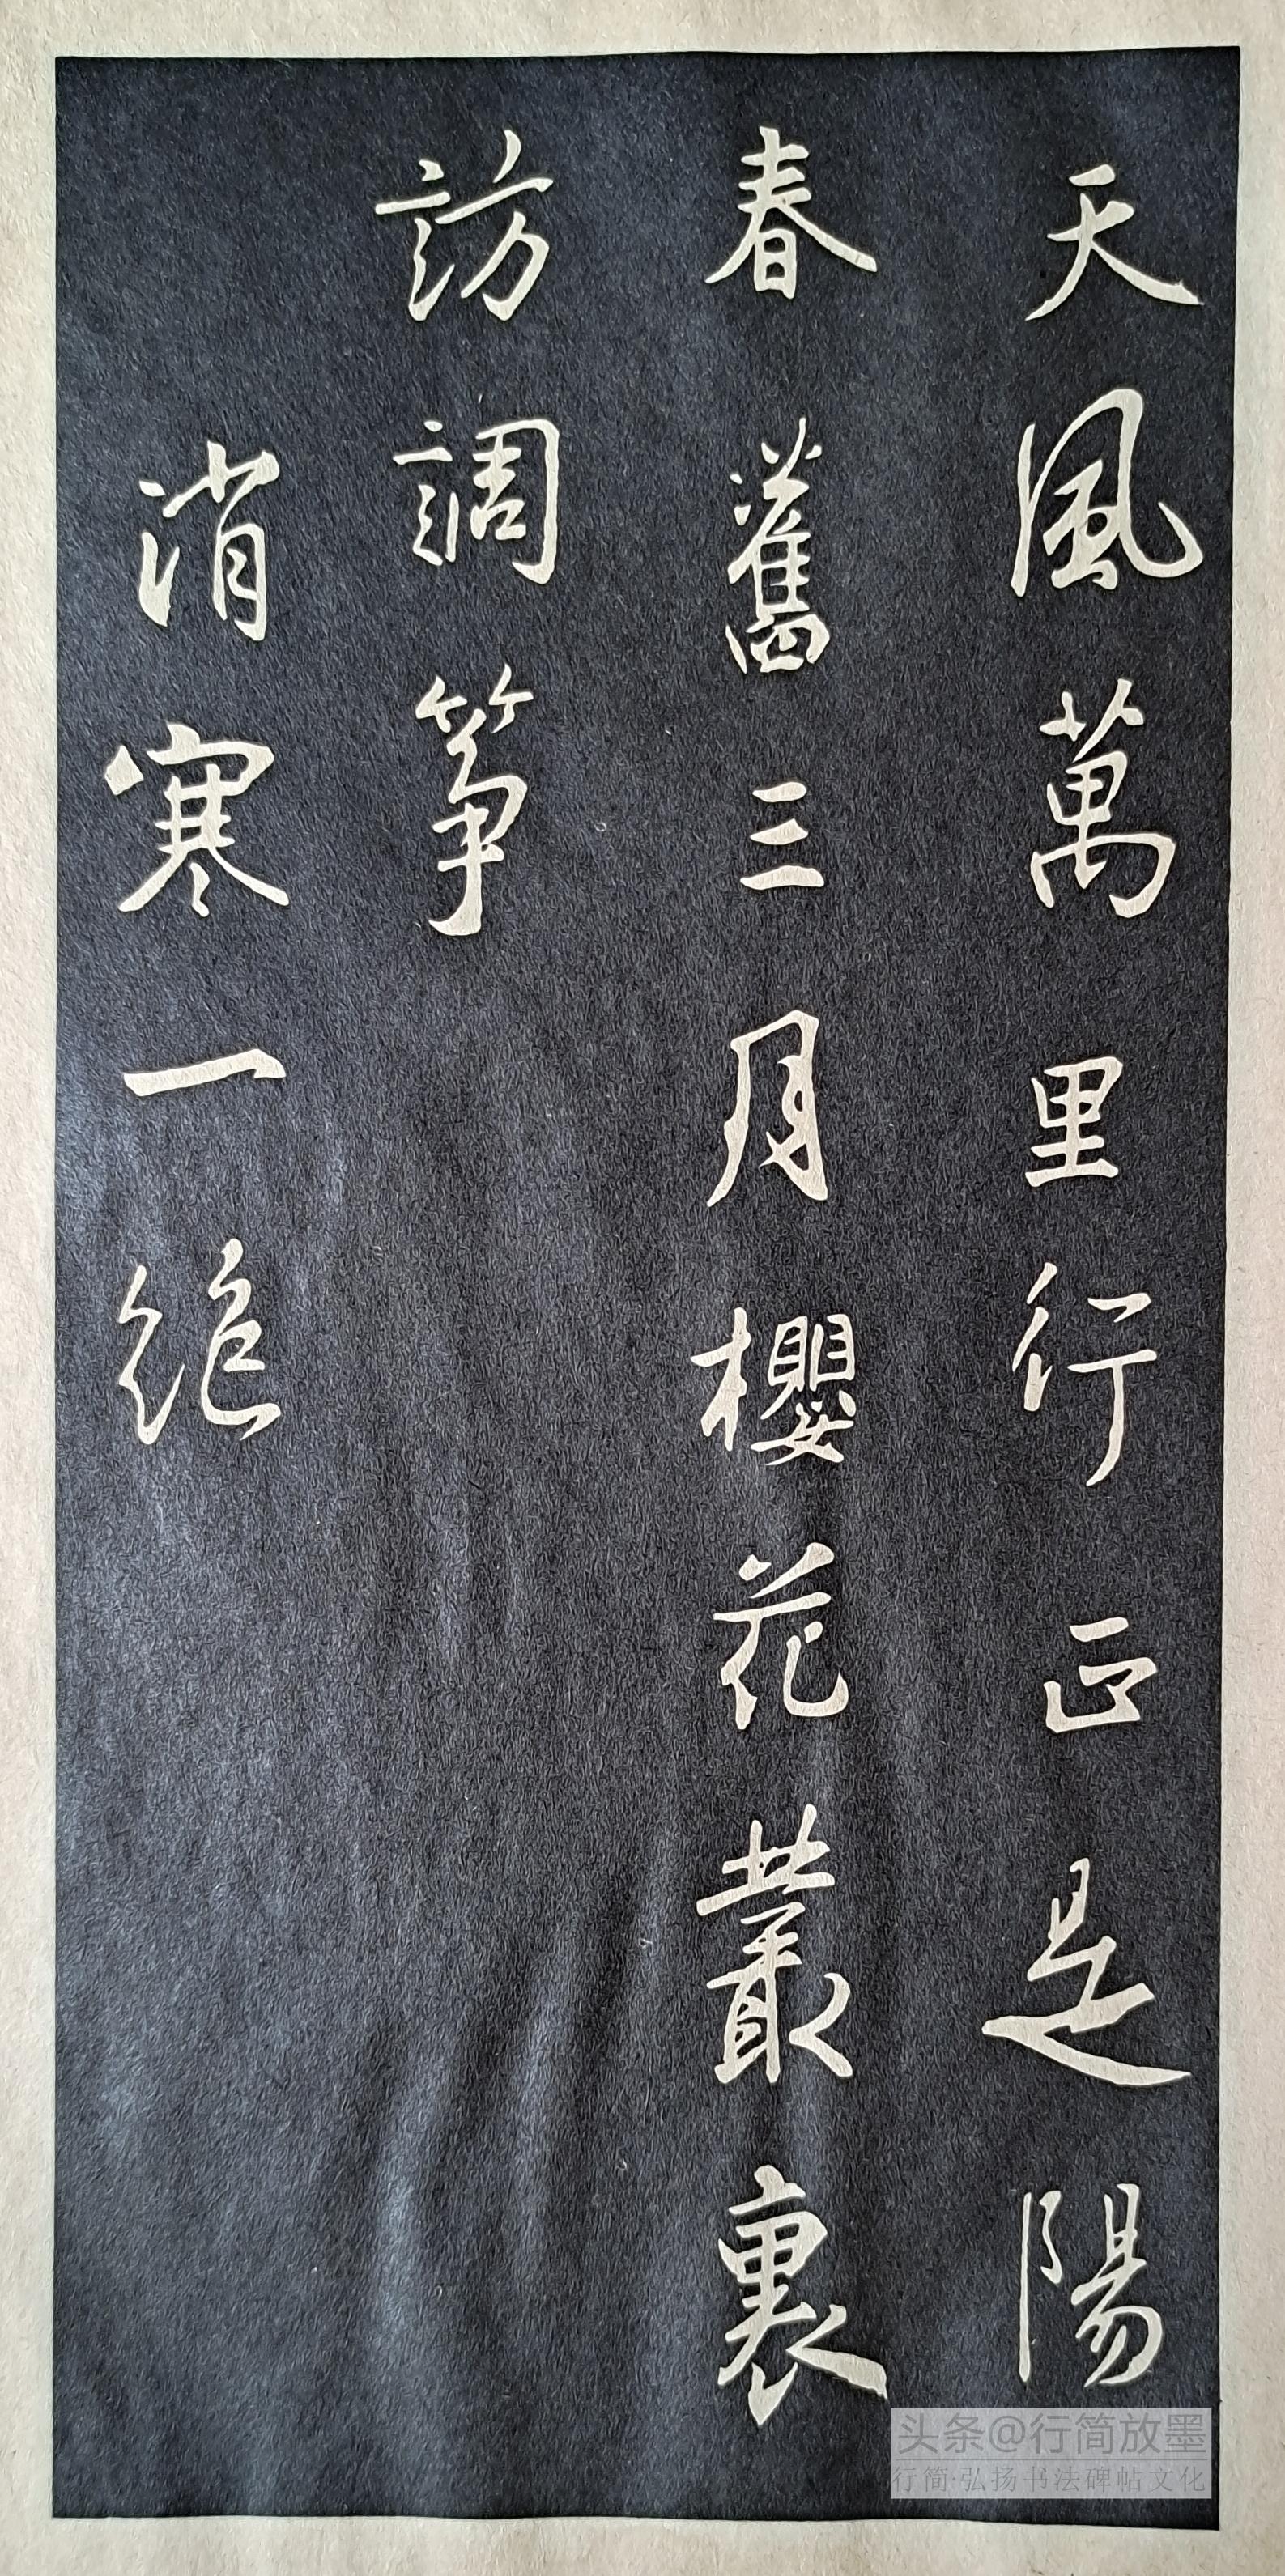 天風萬里行正是陽
春舊三月櫻花叢裏
訪調筝
消寒一絶
头条@行简放墨
行简·弘扬书法碑帖文化